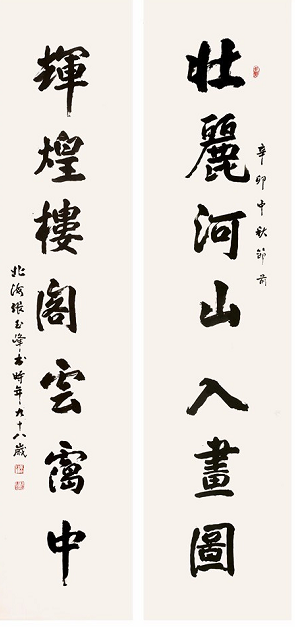 壯麗河山入畫圖
辛卯中秋節前
輝煌樓閣雲靄中
北海張玉峰书時年九十八歲